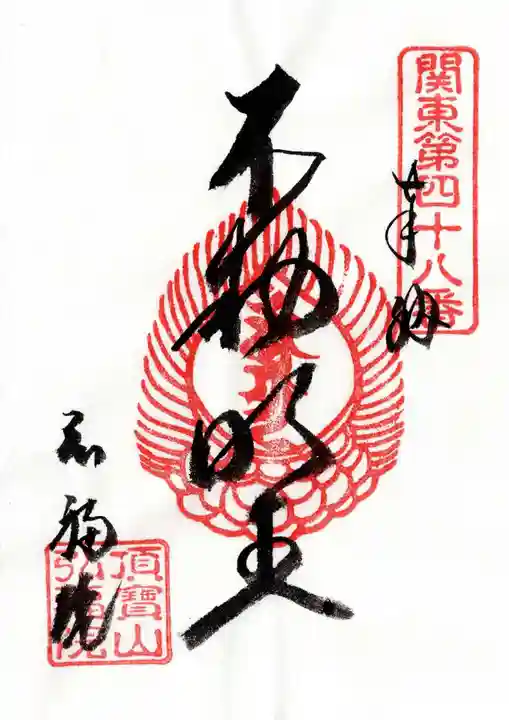 関東第四十八番
奉拝
不動明王
弘福院
頂寶山
弘福院